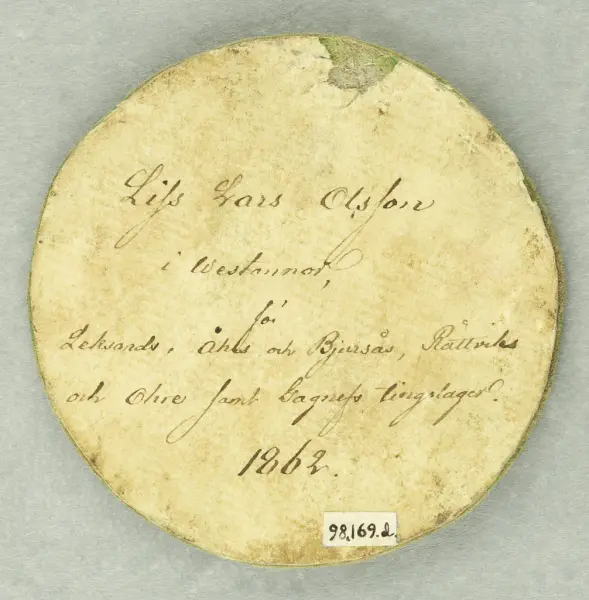 Liss Lars Olsson
i Westannor,
för
Leksands, Åhls och Bjursås, Rättviks
och Ohre samt Gagnefs tingslager.
1862.
98.169.d.